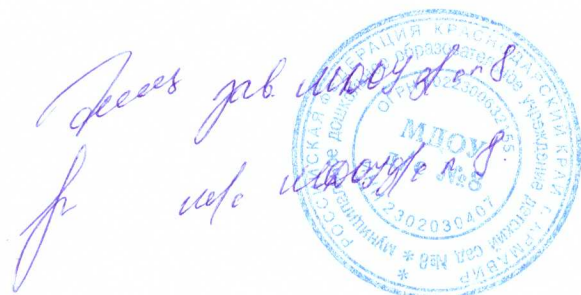 зав. МДОУ д/с № 8
м/с МДОУ д/с № 8.
РОССИЙСКАЯ ФЕДЕРАЦИЯ КРАСНОДАРСКИЙ КРАЙ Г. АРМАВИР
* муниципальное дошкольное образовательное учреждение детский сад №8 *
МДОУ
д/с №8
2302030407